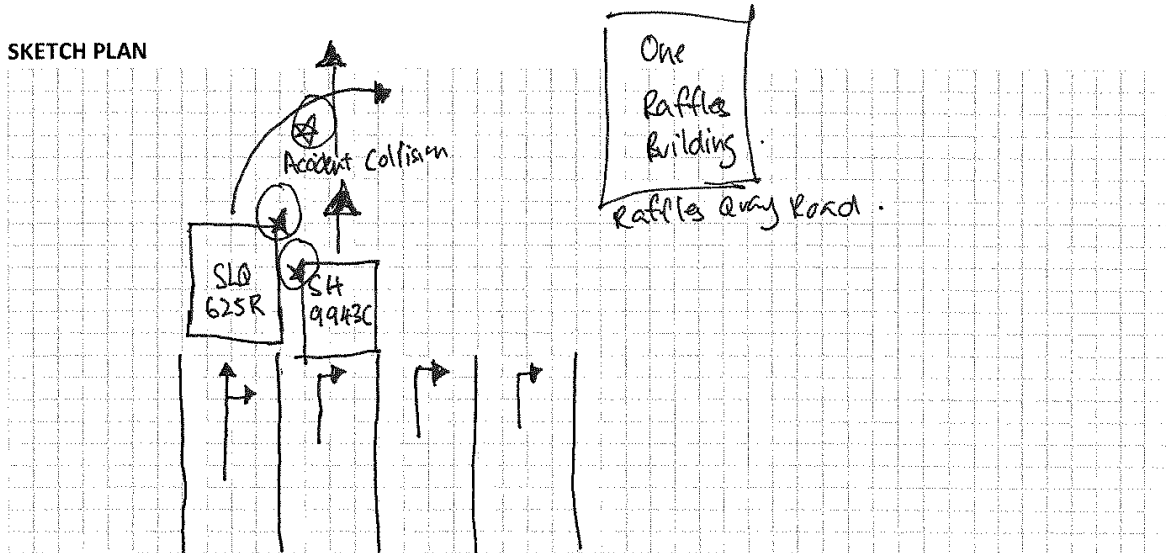 SKETCH PLAN
One
Raffles
Building.
Raffles Quay Road.
Accident Collision
SLQ
625R
SH
9943C